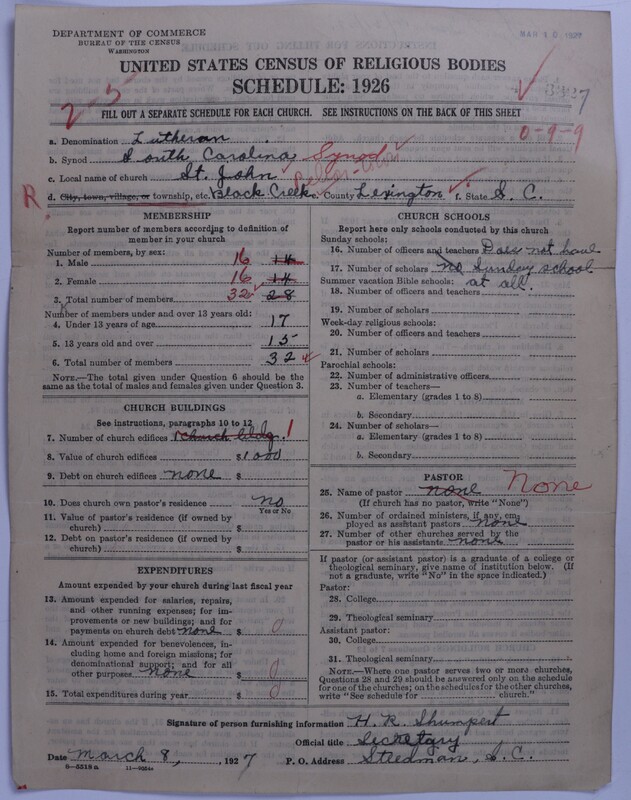 DEPARTMENT OF COMMERCE
BUREAU OF THE CENSUS
WASHINGTON
MAR 10 1927
UNITED STATES CENSUS OF RELIGIOUS BODIES
SCHEDULE: 1926
2-5
FILL OUT A SEPARATE SCHEDULE FOR EACH CHURCH. SEE INSTRUCTIONS ON THE BACK OF THIS SHEET
0-9-9
a. Denomination Lutheran
b. Synod South Carolina Synod
c. Local name of church St. John
R d. City, town, village, or township, etc. Black Creek e. County Lexington f. State S. C.
MEMBERSHIP
Report number of members according to definition of member in your church
Number of members, by sex:
1. Male 16 14
2. Female 16 14
3. Total number of members 32 28
Number of members under and over 13 years old:
4. Under 13 years of age 17
5. 13 years old and over 15
6. Total number of members 32
NOTE.—The total given under Question 6 should be the same as the total of males and females given under Question 3.
CHURCH BUILDINGS
See instructions, paragraphs 10 to 12
7. Number of church edifices 1 church bldg. 1
8. Value of church edifices $1000
9. Debt on church edifices none $
10. Does church own pastor's residence no
Yes or No
11. Value of pastor's residence (if owned by church) $
12. Debt on pastor's residence (if owned by church) $
EXPENDITURES
Amount expended by your church during last fiscal year
13. Amount expended for salaries, repairs, and other running expenses; for improvements or new buildings; and for payments on church debt none $ 0
14. Amount expended for benevolences, including home and foreign missions; for denominational support; and for all other purposes none $ 0
15. Total expenditures during year $ 0
CHURCH SCHOOLS
Report here only schools conducted by this church
Sunday schools:
16. Number of officers and teachers Does not have
17. Number of scholars no Sunday school
Summer vacation Bible schools: at all.
18. Number of officers and teachers
19. Number of scholars
Week-day religious schools:
20. Number of officers and teachers
21. Number of scholars
Parochial schools:
22. Number of administrative officers
23. Number of teachers—
a. Elementary (grades 1 to 8)
b. Secondary
24. Number of scholars—
a. Elementary (grades 1 to 8)
b. Secondary
PASTOR
25. Name of pastor none None
(If church has no pastor, write "None")
26. Number of ordained ministers, if any, employed as assistant pastors none
27. Number of other churches served by the pastor or his assistants none
If pastor (or assistant pastor) is a graduate of a college or theological seminary, give name of institution below. (If not a graduate, write "No" in the space indicated.)
Pastor:
28. College
29. Theological seminary
Assistant pastor:
30. College
31. Theological seminary
NOTE.—Where one pastor serves two or more churches, Questions 28 and 29 should be answered only on the schedule for one of the churches; on the schedules for the other churches, write "See schedule for church."
Signature of person furnishing information H. R. Shumpert
Official title Secretary
Date March 8, , 1927 P. O. Address Steedman, S. C.